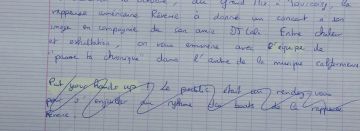 rappeuse américaine Reverie a donné un concert à son
image en compagnie de son amie DJ Lala. Entre chaleur
et exaltation, on vous emmène avec l'équipe de
"passe ta chronique" dans l'antre de la musique californienne
Put your hands up !) Le public était au rendez-vous
pour s' au rythme des beats de la rappeuse
Reverie,